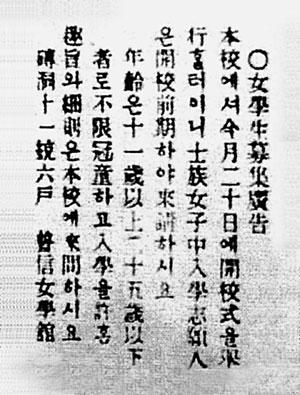 ○女學生募集廣告
本校에셔今月二十日에開校式을擧
行홀터이니士族女子中入學志願人
은開校前期하야來請하시요
年齡은十一歲以上二十五歲以下
者로不限冠童하고入學을許홈
趣旨와細則은本校에來問하시요
磚洞十一號六戶 信女學館